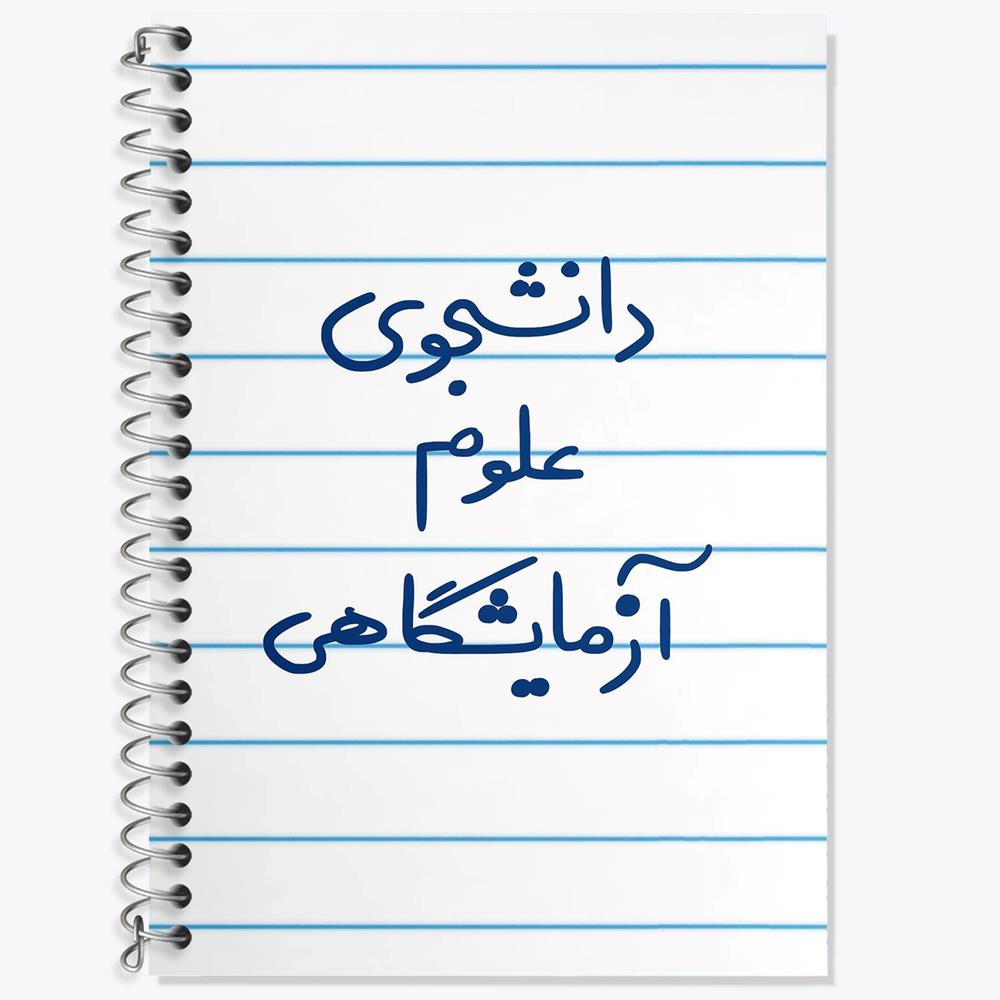 دانشجوی
علوم
آزمایشگاهی